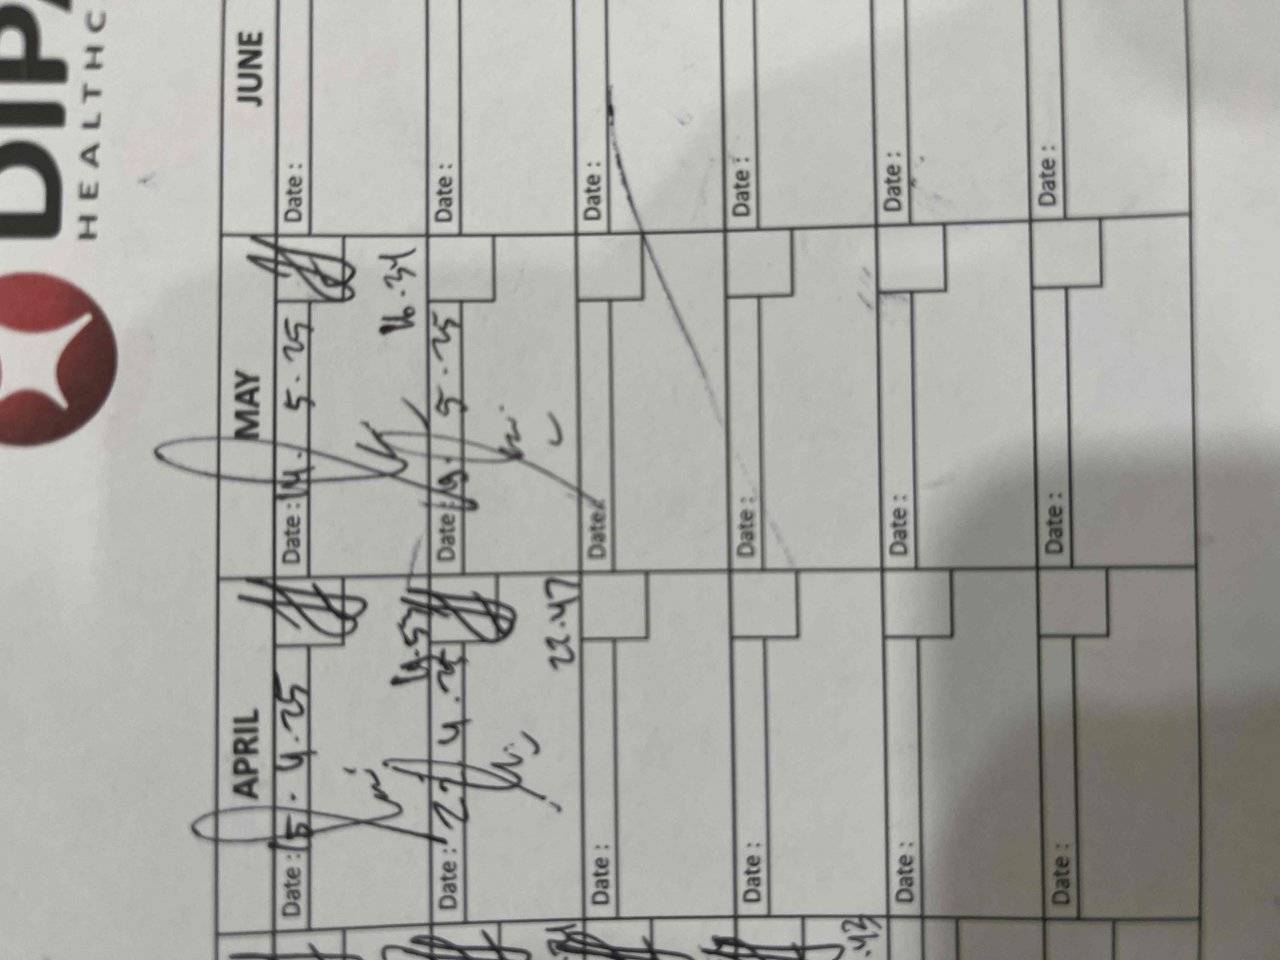 DIPA
HEALTHC
APRIL MAY JUNE
Date : 15 . 4 . 25 Date : 14 . 5 . 25 Date :
16.34
Date : 22 4 . 25 Date : 19 . 5 . 25 Date :
22.47
Date : Date : Date :
Date : Date : Date :
.43
Date : Date : Date :
Date : Date : Date :